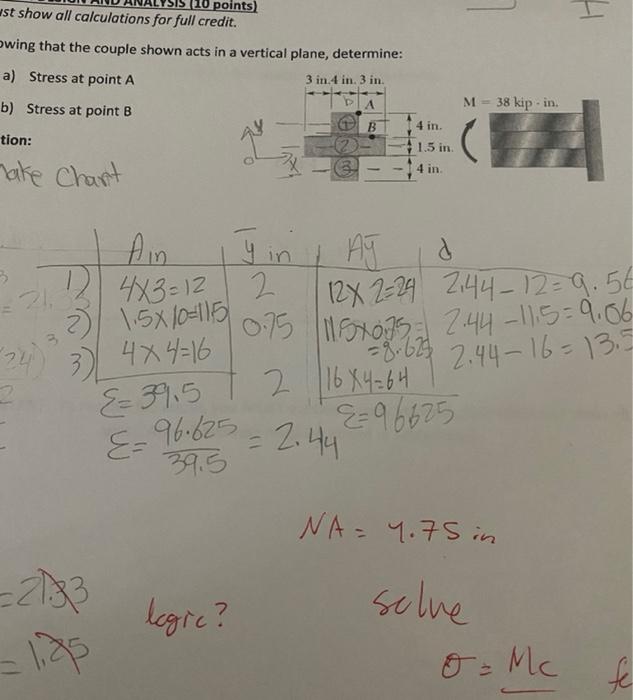 AND ANALYSIS (10 points)
ust show all calculations for full credit.
owing that the couple shown acts in a vertical plane, determine:
a) Stress at point A
b) Stress at point B
tion:
3 in. 4 in. 3 in.
D A
B
1
2
3
4 in.
1.5 in.
4 in.
M = 38 kip · in.
y
x
0
Make Chart
A in ȳ in Aȳ d
1) 4x3=12 2 12x2=24 2.44-12=9.56
2) 1.5x10=115 0.75 11.5x0.75= 2.44-11.5=9.06
=8.625
3) 4x4=16 2 16x4=64 2.44-16=13.5
Σ=39.5 Σ=96625
Σ= 96.625 = 2.44
39.5
NA = 4.75 in
=21.33
= 1.25
logic?
solve
σ = Mc